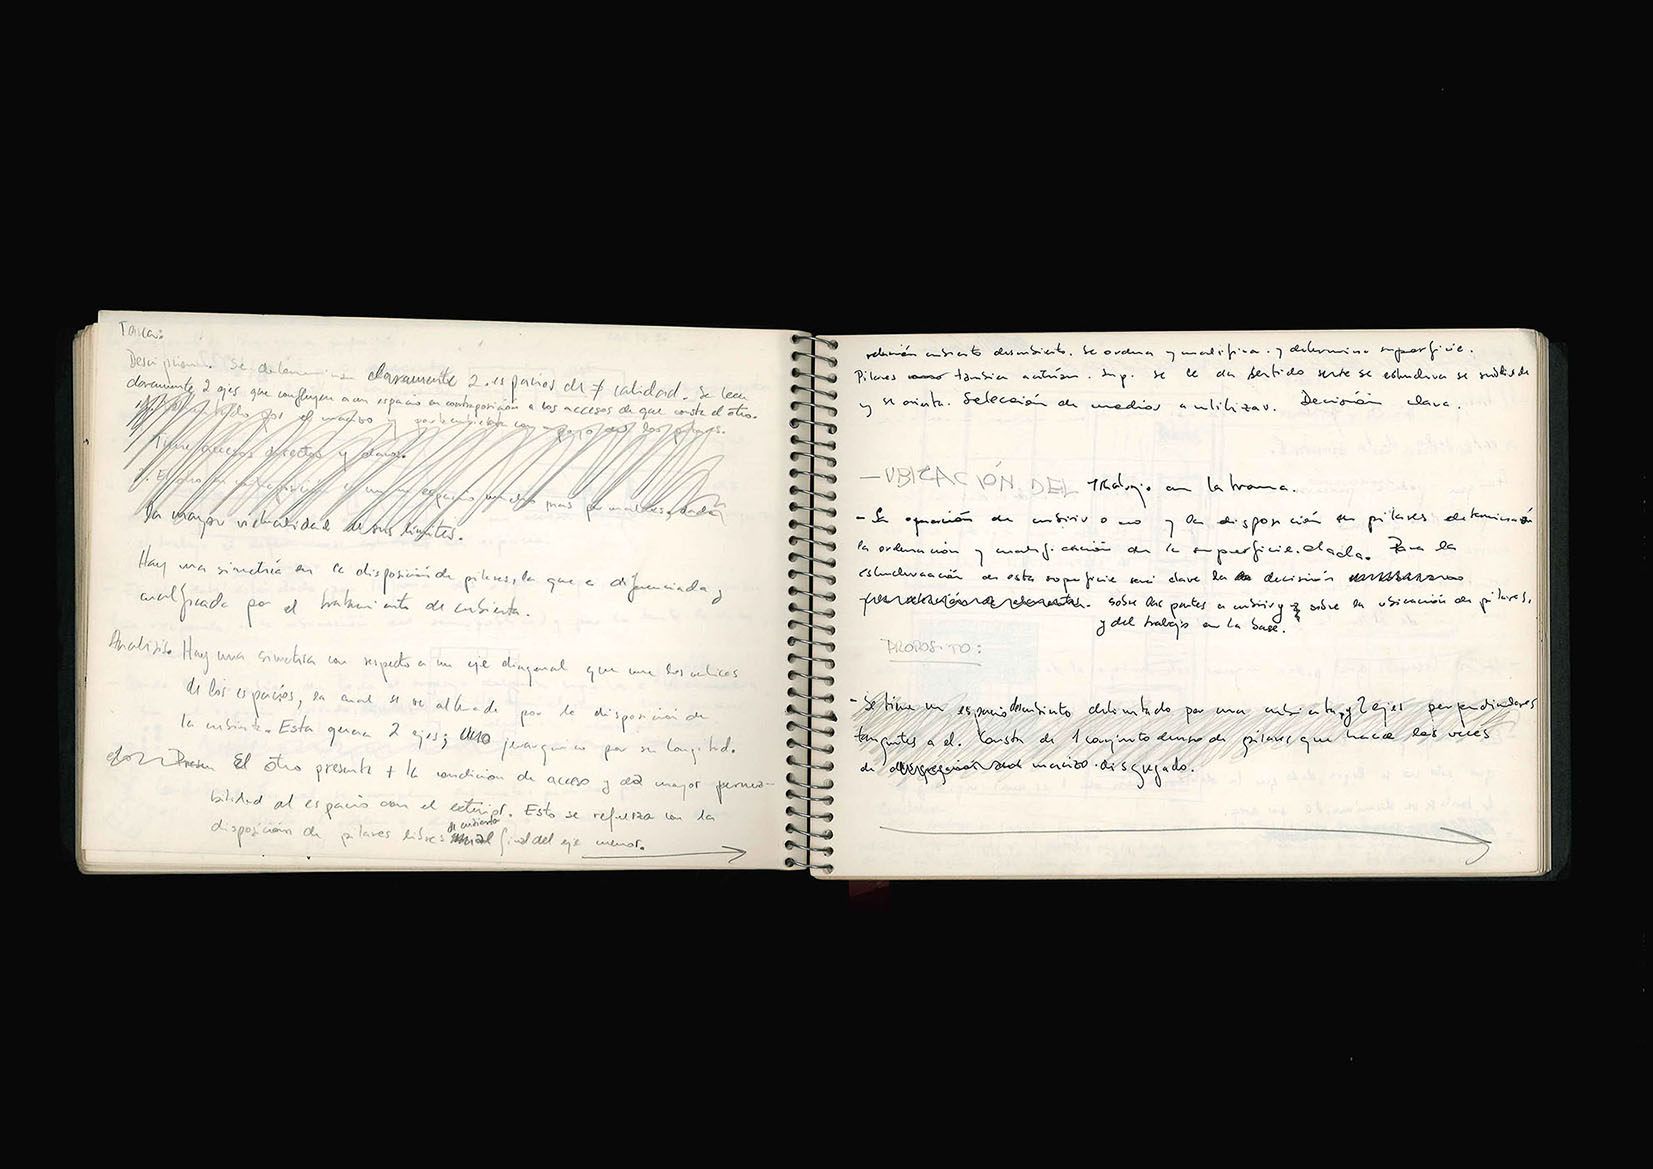 Tarea:
Descripción. Se determinan claramente 2 espacios de ≠ calidad. Se leen
claramente 2 ejes que confluyen a un espacio en contraposición a los accesos de que consta el otro.
por el macizo y por los pilares.
Tiene accesos directos y claros.
El otro en contraposición es un espacio mucho más
la mayor virtualidad de sus límites.
Hay una simetría en la disposición de pilares, la que es diferenciada y
cualificada por el tratamiento de cubierta.
Análisis. Hay una simetría con respecto a un eje diagonal que une los vértices
de los espacios, la cual se ve alterada por la disposición de
la cubierta. Esta genera 2 ejes; uno jerárquico por su longitud.
El otro presenta + la condición de acceso y da mayor permea-
bilidad al espacio con el exterior. Esto se refuerza con la
de cubierta
disposición de pilares libres al final del eje menor.
relación cubierto descubierto. Se ordena y cualifica. y determina superficie.
Pilares también actúan. Sup. se le da sentido se estructura se
y se orienta. Selección de medios a utilizar. Decisión clave.
- UBICACIÓN DEL trabajo en la trama.
- La operación de cubrir o no y la disposición en pilares determinarán
la ordenación y cualificación de la superficie dada. Para la
estructuración de esta superficie será clave la decisión
sobre las partes a cubrir y sobre la ubicación de pilares,
y del trabajo en la base.
PROPOSITO:
- Se tiene un espacio descubierto delimitado por una cubierta, y 2 ejes perpendiculares
tangentes a él. Consta de 1 conjunto denso de pilares que hace las veces
de macizo disgregado.